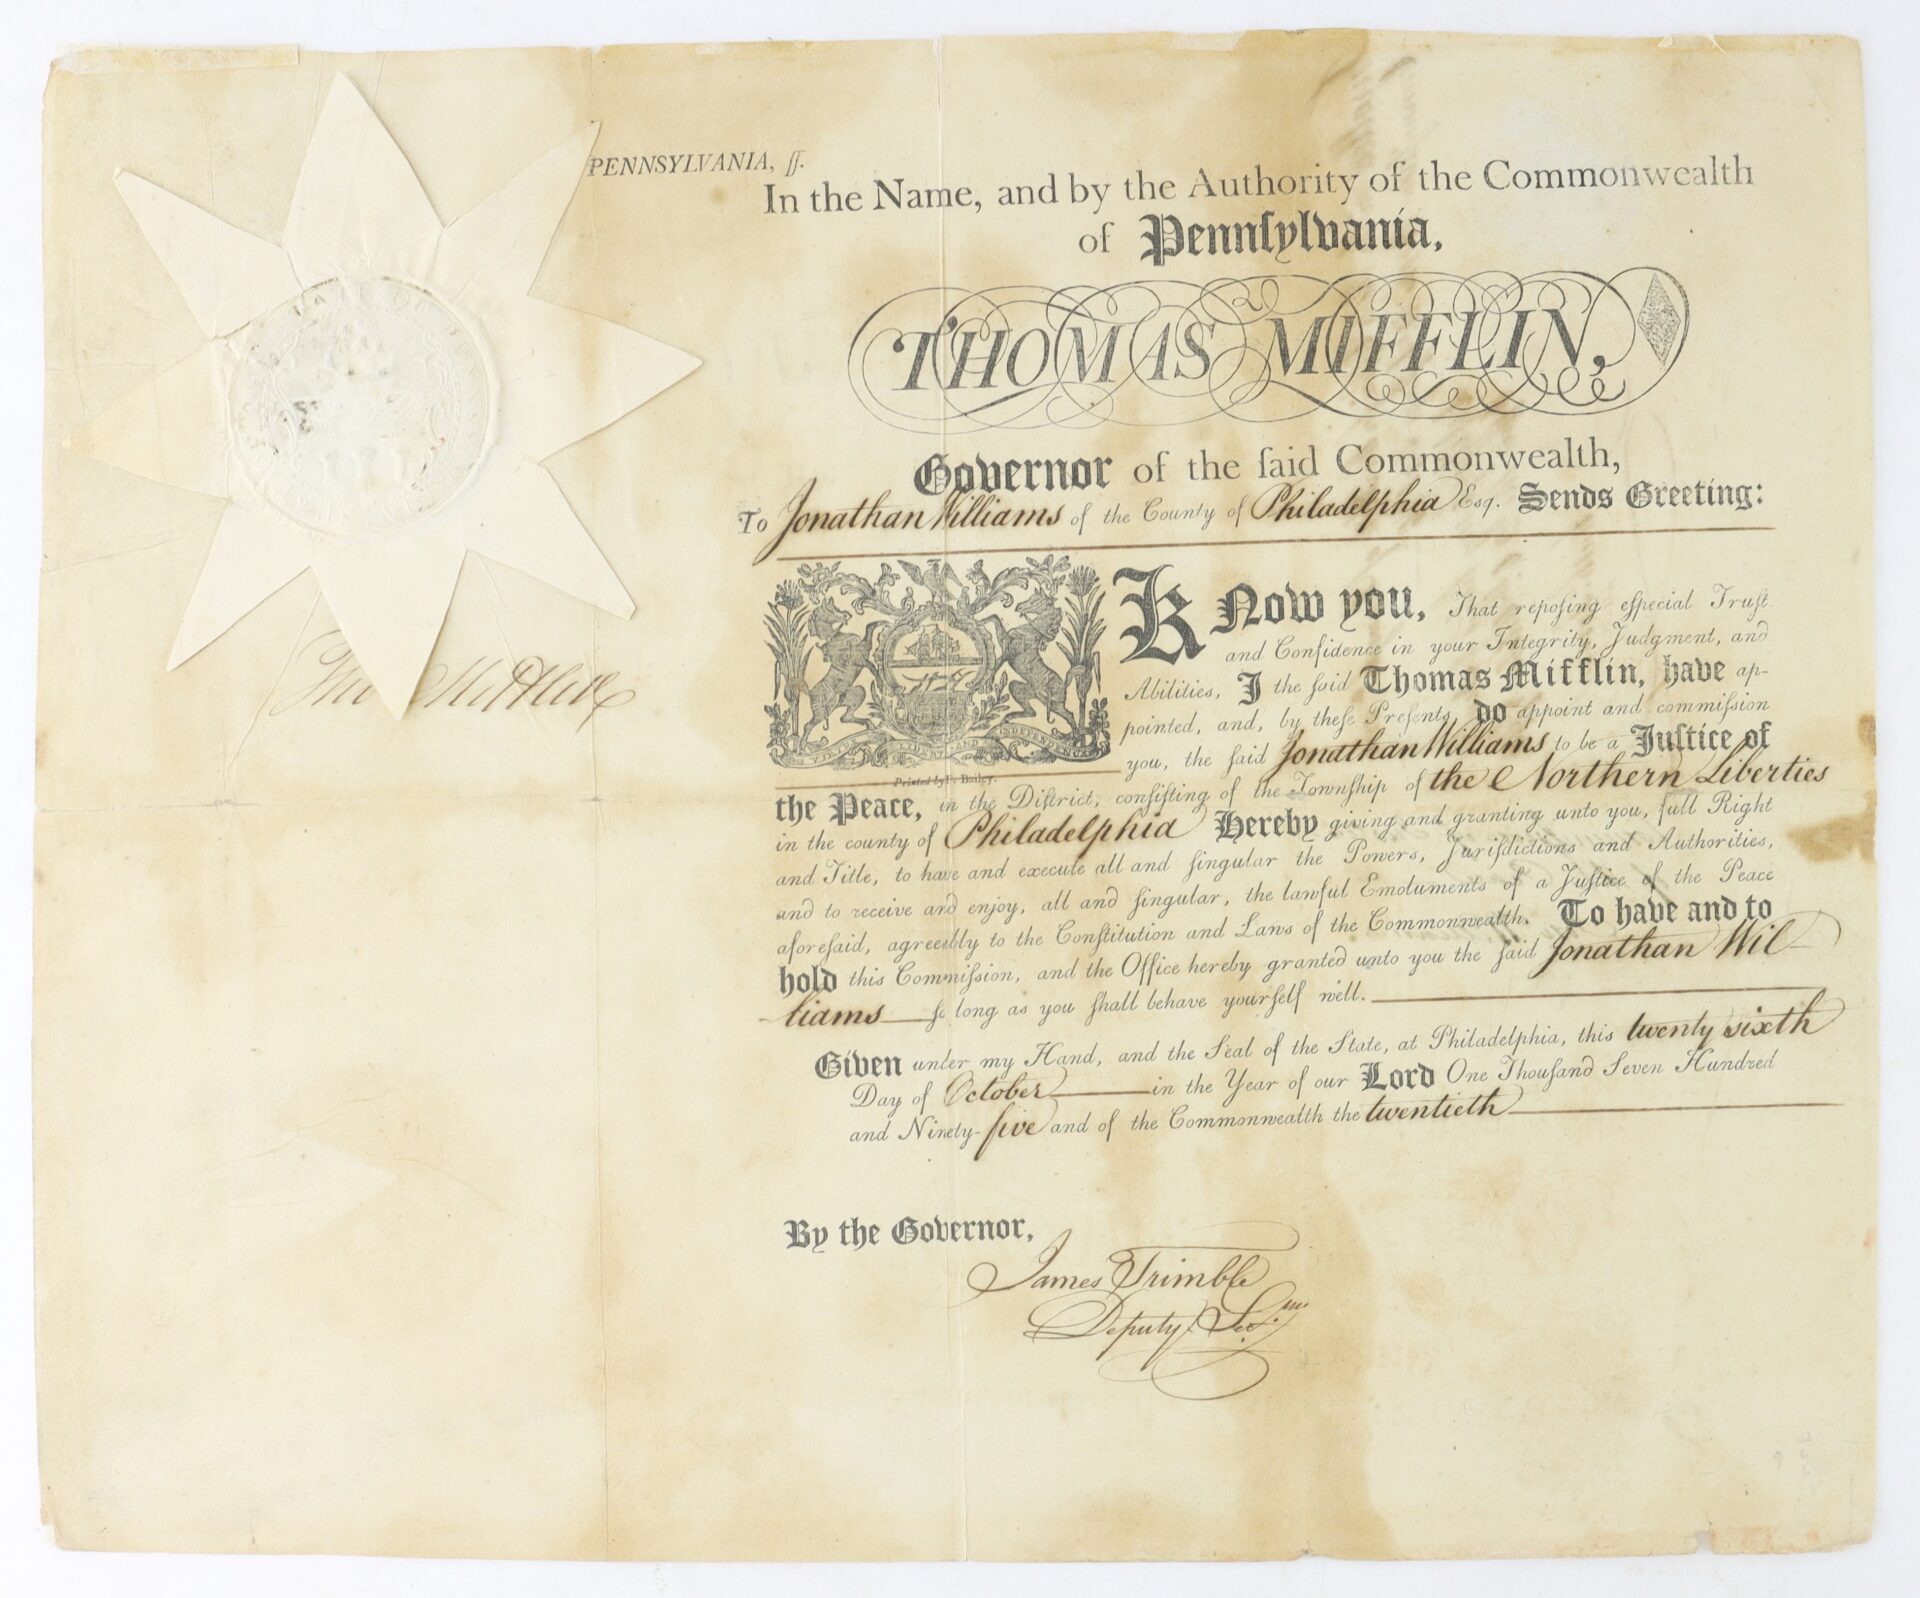 PENNSYLVANIA, ſſ.
In the Name, and by the Authority of the Commonwealth
of Pennſylvania,
THOMAS MIFFLIN,
Governor of the ſaid Commonwealth,
To Jonathan Williams of the County of Philadelphia Esq. Sends Greeting:
KNow you, That repoſing eſpecial Truſt
and Confidence in your Integrity, Judgment, and
Abilities, I the ſaid Thomas Mifflin, have ap-
pointed, and, by theſe Preſents, do appoint and commiſſion
you, the ſaid Jonathan Williams to be a Juſtice of
Printed by F. Bailey.
the Peace, in the Diſtrict, conſiſting of the Townſhip of the Northern Liberties
in the county of Philadelphia Hereby giving and granting unto you, full Right
and Title, to have and execute all and ſingular the Powers, Juriſdictions and Authorities,
and to receive and enjoy, all and ſingular, the lawful Emoluments of a Juſtice of the Peace
aforeſaid, agreeably to the Conſtitution and Laws of the Commonwealth. To have and to
hold this Commiſſion, and the Office hereby granted unto you the ſaid Jonathan Wil-
liams ſo long as you ſhall behave yourſelf well.
Given under my Hand, and the Seal of the State, at Philadelphia, this twenty sixth
Day of October in the Year of our Lord One Thouſand Seven Hundred
and Ninety-five and of the Commonwealth the twentieth
By the Governor,
James Trimble
Deputy Secy.
Tho Mifflin
STATE OF
INDEPENDENCE